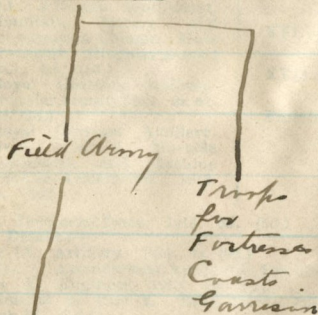 Field Army
Troops
for
Fortresses
Coasts
Garrison